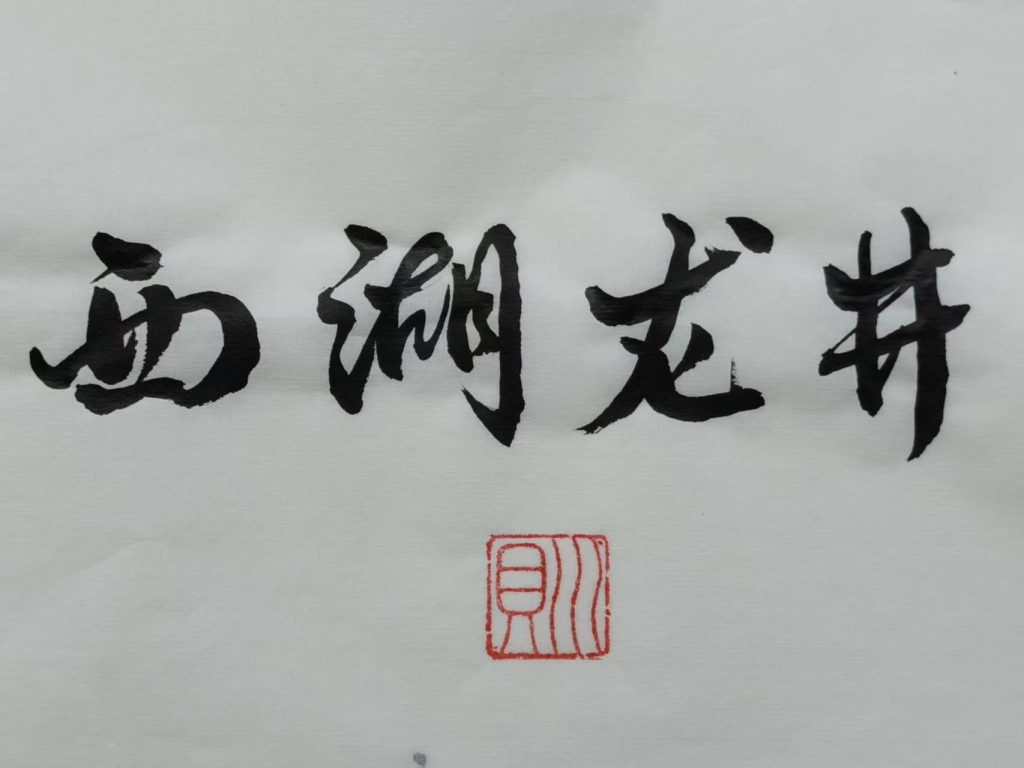 西湖龙井